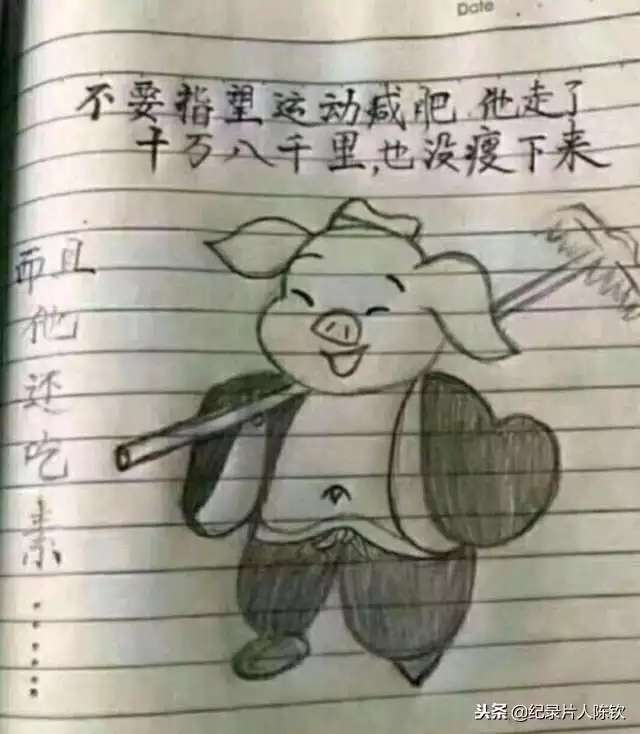 Date
不要指望运动减肥 他走了
十万八千里,也没瘦下来
而且他还吃素……
头条 @纪录片人陈钦